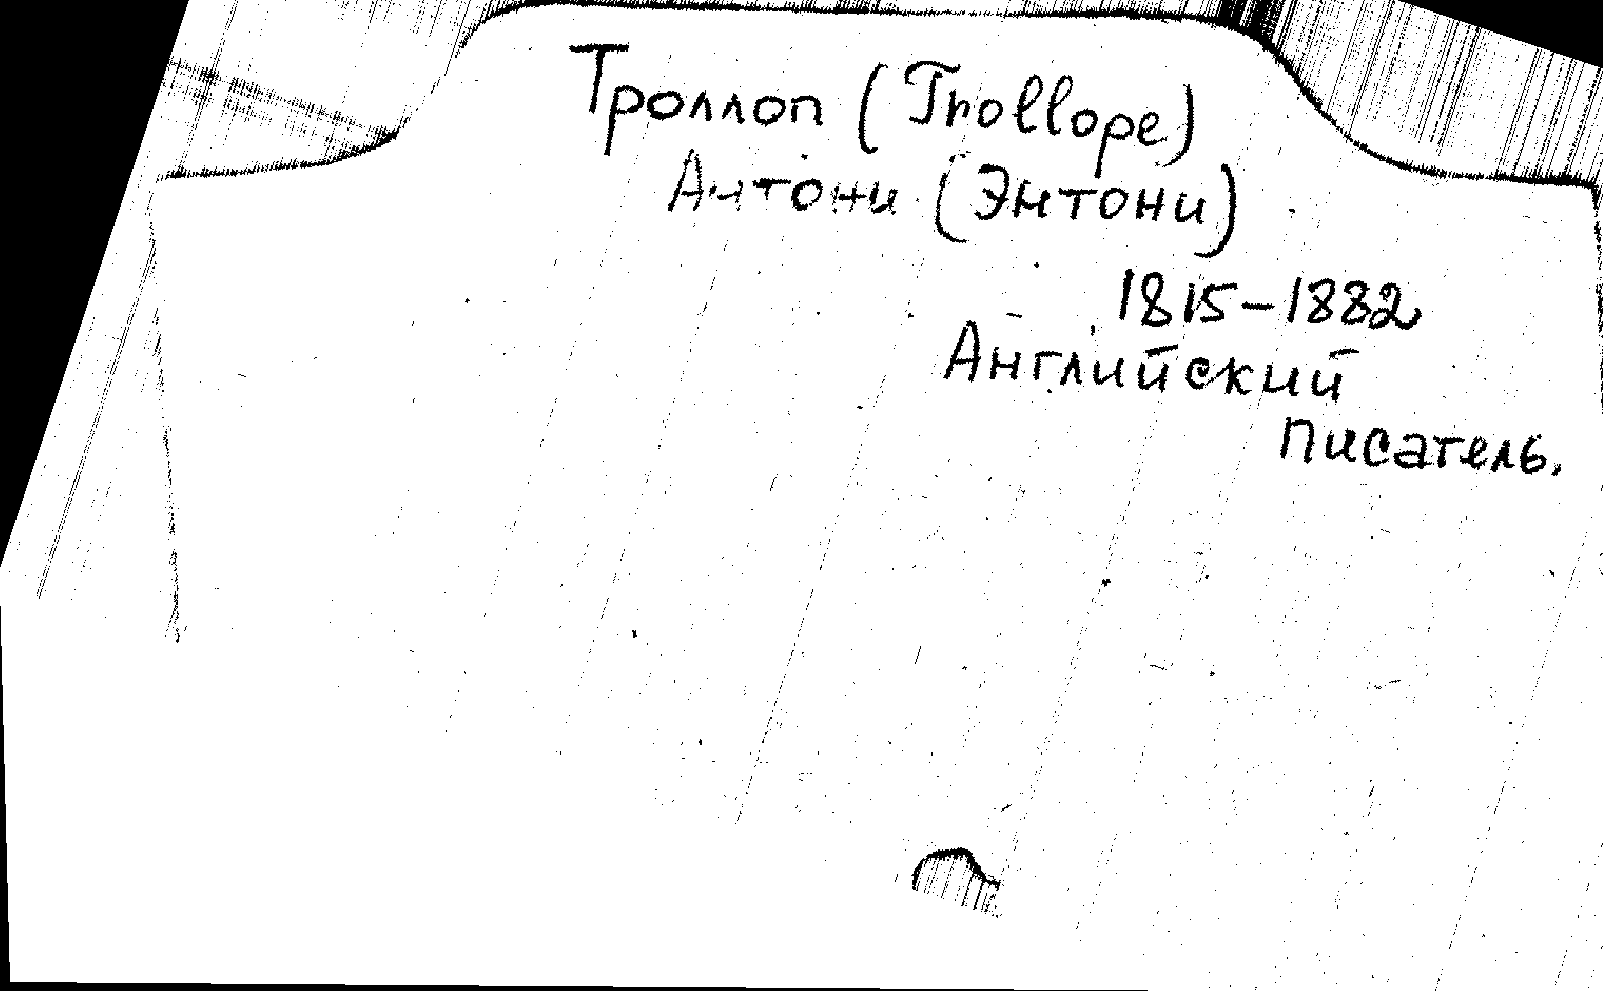 Троллоп (Trollope)
Антони (Энтони)
1815-1882
Английский
писатель.